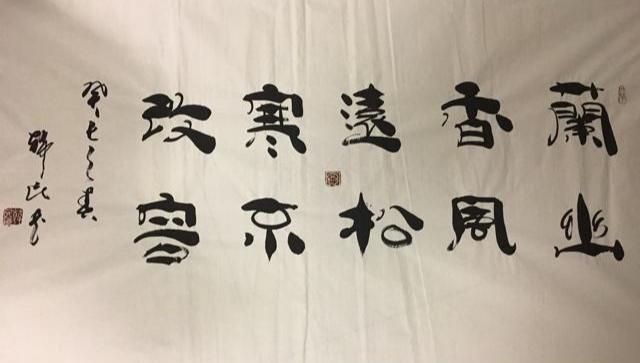 蘭幽
香風
遠松
寒不
改容
癸巳之春